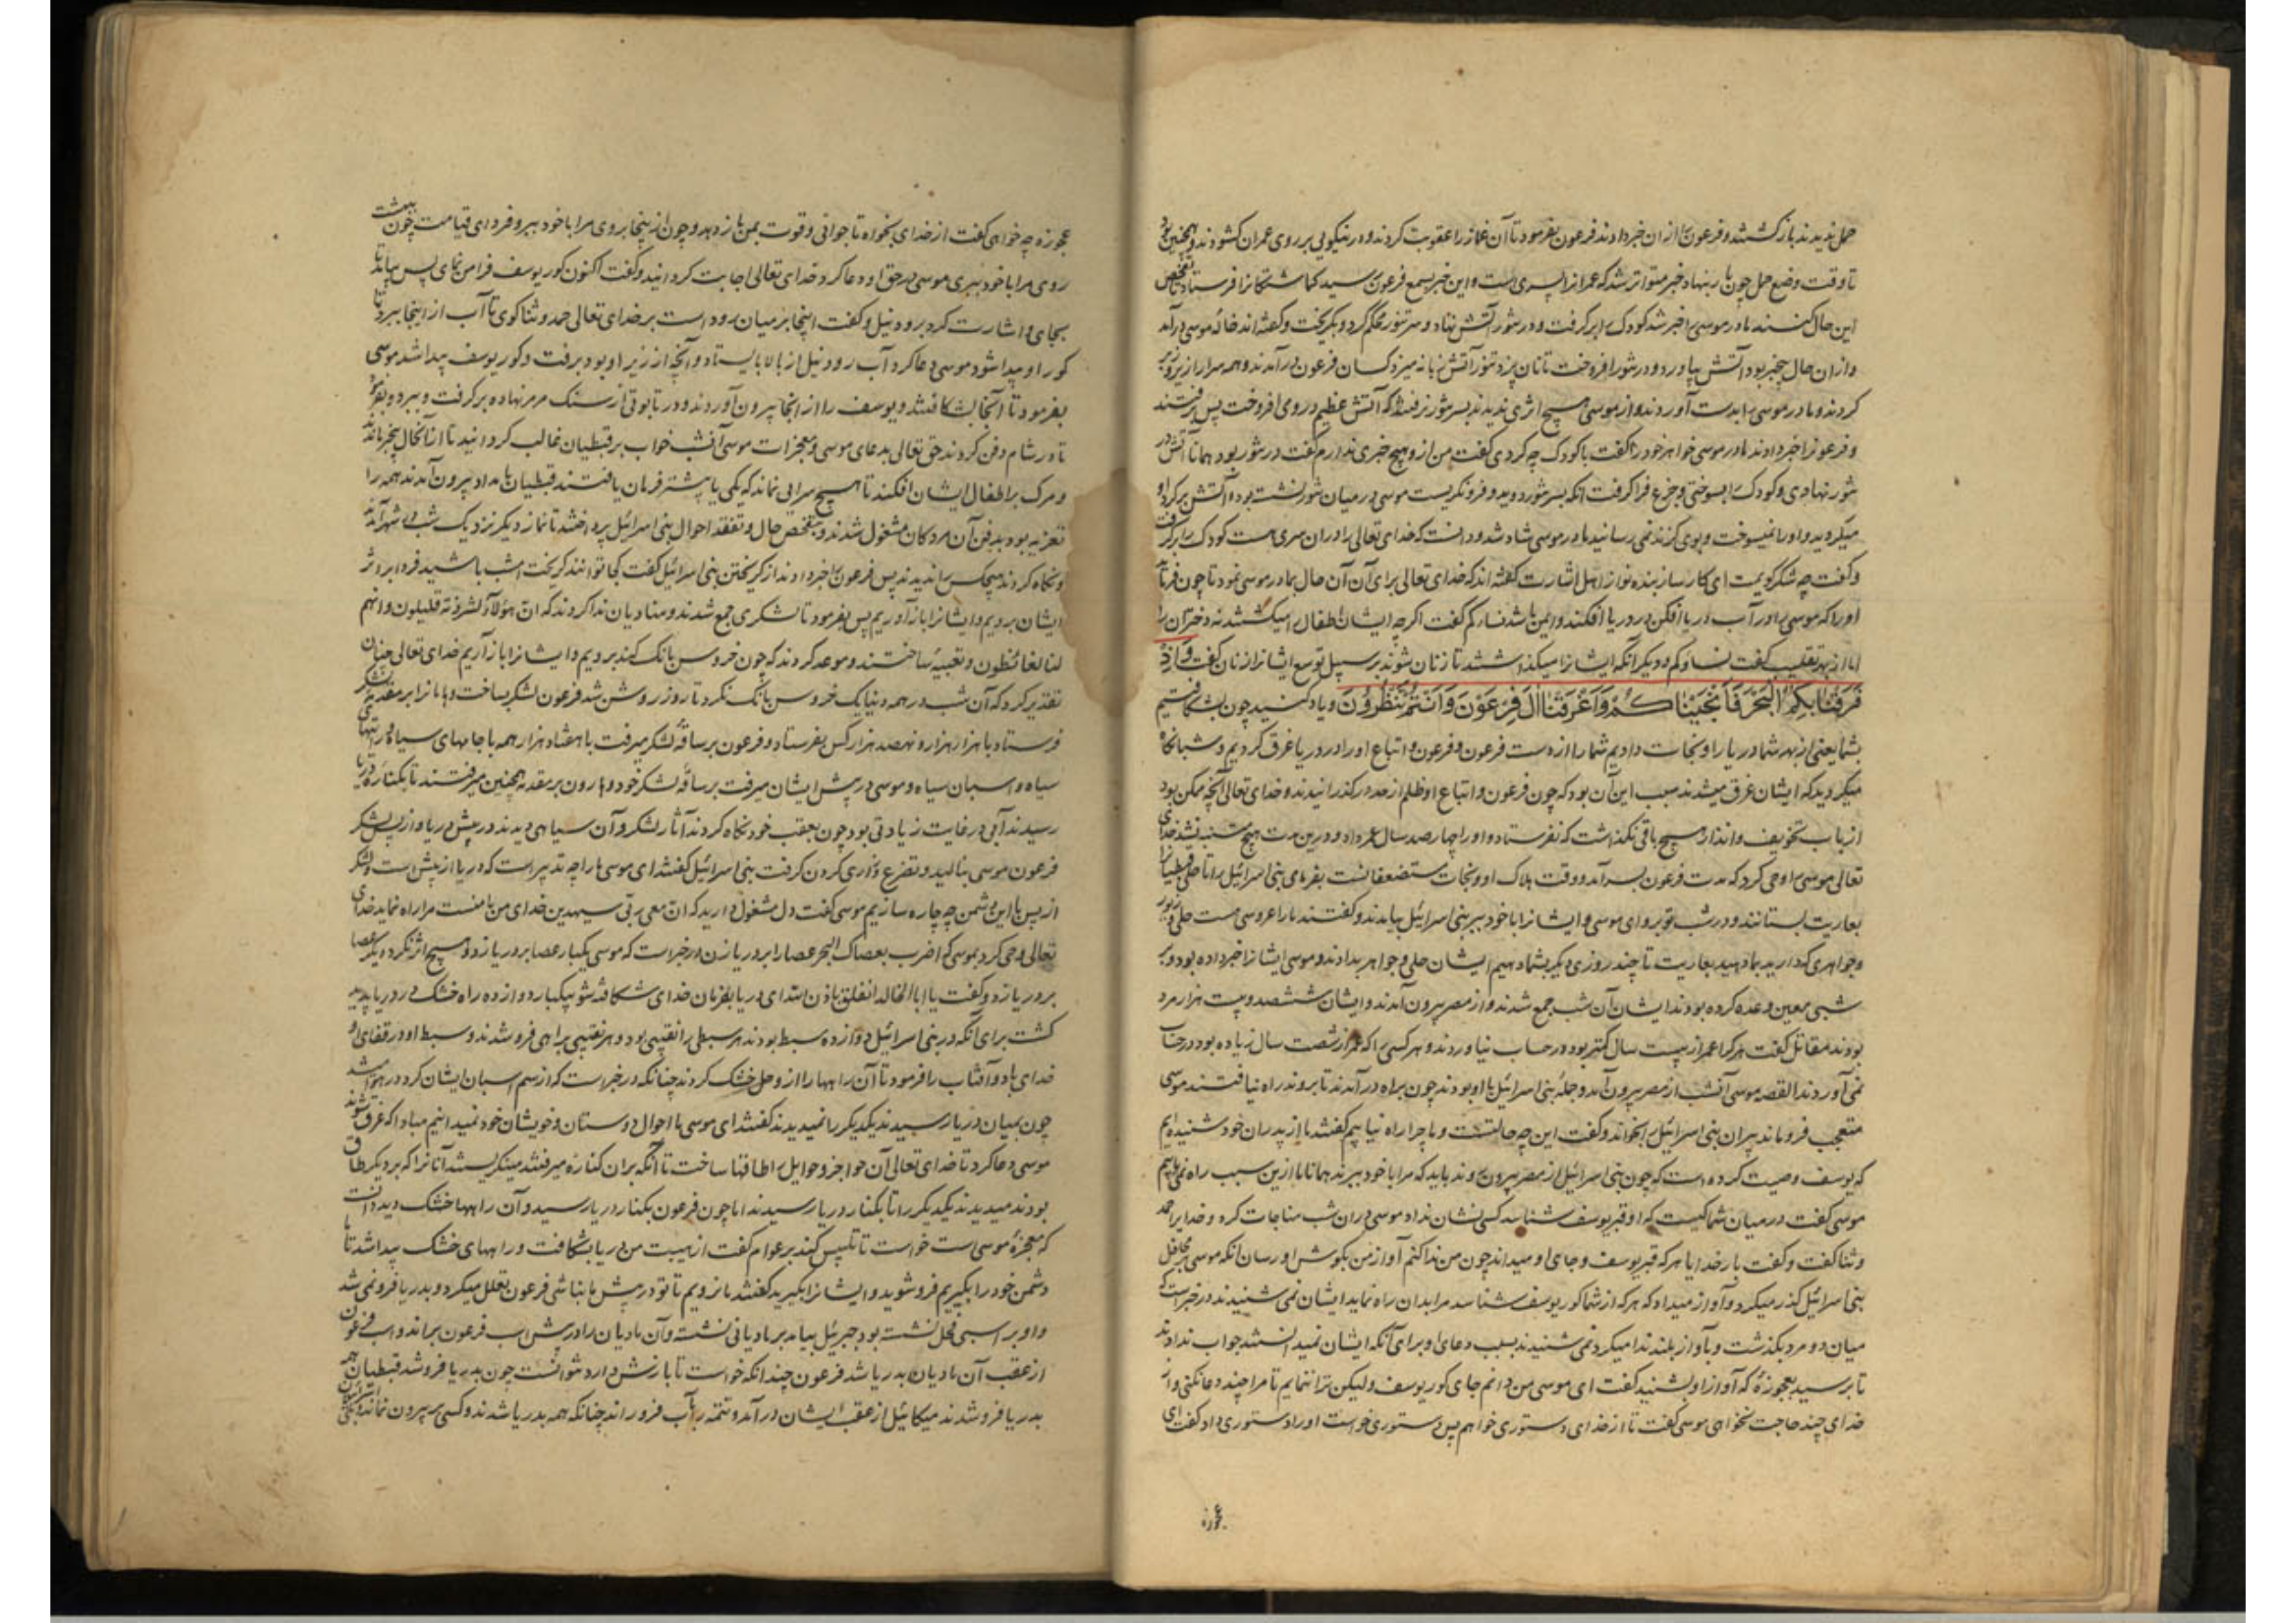 حمل ندیدند باز گشتند و فرعون را از ان خبر دادند فرعون بفرمود تا آن غماز را عقوبت کردند و در نیکویی بر روی عمران کشودند و همچنین بود
تا وقت وضع حمل چون بار بنهاد خبر متواتر شد که عمرانرا پسری است و این خبر بسمع فرعون رسید کماشتکانرا فرستاد تا تفحص
این حال کنند مادر موسی را خبر شد کودک را بر کرفت و در تنور آتش نهاد و سر تنور محکم کرد و بکریخت و گفته اند خاله موسی در آمد
و از ان حال بیخبر بود آتش بیاورد و در تنور افروخت تا نان پزد تنور آتش زبانه میزد کسان فرعون در آمدند و همه سرا را زیر و زبر
کردند و مادر موسی را بدست آوردند و از موسی هیچ اثری ندیدند بسر تنور نرفتند که آتش عظیم در وی افروخت پس برفتند
و فرعونرا خبر دادند مادر موسی خواهر خود را گفت با کودک چه کردی گفت من از و هیچ خبری ندارم گفت در تنور بود همانا آتش در
تنور نهادی و کودک را بسوختی و جزع فرا کرفت آنکه بسر تنور دوید و فرو نکریست موسی در میان تنور نشسته بود و آتش بر کرد او
میکردید و او را نمیسوخت و بوی کزند نمی رسانید مادر موسی شاد شد و دانست که خدای تعالی را در ان سری هست کودک را بر کرفت
و گفت چه شکر کویمت ای کارساز بنده نواز اهل اشارت گفته اند که خدای تعالی برای آن آن حال بمادر موسی نمود تا چون فرماید
او را که موسی را در آب دریا افکن در دریا افکند و ایمن باشد نساءکم گفت اکرچه ایشان اطفال را میکشتند نه دختران را
اما از بهر تغلیب گفت نساءکم و دیکر آنکه ایشانرا میکذاشتند تا زنان شوند بر سبیل توسع ایشانرا زنان گفت وَاِذْ
فَرَقْنَا بِكُمُ الْبَحْرَ فَاَنْجَيْنَاكُمْ وَاَغْرَقْنَا اٰلَ فِرْعَوْنَ وَاَنْتُمْ تَنْظُرُوْنَ و یاد کنید چون بشکافتیم
بشما یعنی از بهر شما دریا را و نجات دادیم شما را از دست فرعون و فرعون و اتباع او را در دریا غرق کردیم و شما نکاه
میکردید که ایشان غرق میشدند سبب این آن بود که چون فرعون و اتباع او ظلم از حد در کذرانیدند و خدای تعالی آنچه ممکن بود
از باب تخویف و انذار هیچ باقی نکذاشت که نفرستاد و او را چهار صد سال عمر داد و درین مدت هیچ متنبه نشد خدای
تعالی موسی را وحی کرد که مدت فرعون بسر آمد و وقت هلاک او و نجات مستضعفانست بفرمای بنی اسرائیل را تا حلی قبطیان
بعاریت بستانند و در شب تو بروای موسی و ایشانرا با خود ببر بنی اسرائیل بیامدند و گفتند ما را عروسی هست حلی و زیور
و جواهری که دارید بما دهید بعاریت تا چند روزی دیکر بشما دهیم ایشان حلی و جواهر بدادند و موسی ایشانرا خبر داده بود و بر
شبی معین وعده کرده بودند ایشان آن شب جمع شدند و از مصر بیرون آمدند و ایشان ششصد و بیست هزار مرد
بودند مقاتل گفت هر کرا عمر از بیست سال کمتر بود در حساب نیاوردند و هر کسی را که عمر از شصت سال زیاده بود در حساب
نمی آوردند القصه موسی آنشب از مصر بیرون آمد و جمله بنی اسرائیل با او بودند چون براه در آمدند تا بروند راه نیافتند موسی
متعجب فرو ماند پیران بنی اسرائیل را بخواند و گفت این چه حالتست و ما چرا راه نیابیم گفتند ما از پدران خود شنیده ایم
که یوسف وصیت کرده است که چون بنی اسرائیل از مصر بیرون روند باید که مرا با خود ببرند همانا ما ازین سبب راه نمی یابیم
موسی گفت در میان شما کیست که او قبر یوسف شناسد کسی نشان نداد موسی در ان شب مناجات کرد و خدایرا حمد
و ثنا گفت و گفت بار خدایا هر که قبر یوسف و جای او میداند چون من ندا کنم آواز من بکوش او رسان آنکه موسی بر محافل
بنی اسرائیل گذر میکرد و آواز میداد که هر که از شما کور یوسف شناسد مرا بدان راه نماید ایشان نمی شنیدند در خبر است که
میان دو مرد بگذشت و بآواز بلند ندا میکرد نمی شنیدند بسبب دعای او برای آنکه ایشان نمیدانستند جواب ندادند
تا برسید بعجوزه که آواز او بشنید گفت ای موسی من دانم جای کور یوسف ولیکن ترا ننمایم تا مرا چند دعا نکنی و از
خدای چند حاجت نخواهی موسی گفت تا از خدای دستوری خواهم پس دستوری خواست او را دستوری داد گفت ای
عجوزه
عجوزه چه خواهی گفت از خدای بخواه تا جوانی و قوت بمن باز دهد و چون از ینجا بروی مرا با خود ببر و فردای قیامت چون ببهشت
روی مرا با خود ببری موسی در حق او دعا کرد خدای تعالی اجابت کردانید و گفت اکنون کور یوسف فرا من نمای پس بیامد تا
بجای و اشارت کرد برود نیل و گفت اینجا بر میان رود است بر خدای تعالی حمد و ثنا کوی تا آب از اینجا ببرد تا
کور او پیدا شود موسی دعا کرد آب رود نیل از بالا بایستاد و آنچه از زیر او بود برفت و کور یوسف پیدا شد موسی
بفرمود تا آنجا بشکافتند و یوسف را از انجا بیرون آوردند و در تابوتی از سنک مرمر نهاده بر کرفت و ببرد و بفرمود
تا در شام دفن کردند حق تعالی بدعای موسی و معجزات موسی آنشب خواب بر قبطیان غالب کردانید تا از آنحال بیخبر ماندند
و مرک بر اطفال ایشان افکند تا هیچ سرایی نماند که یکی یا بیشتر فرمان یافتند قبطیان بامداد بیرون آمدند همه را
تعزیه بود بدفن آن مردکان مشغول شدند و بتفحص حال و تفقد احوال بنی اسرائیل پرداختند تا نماز دیکر نزدیک شب در شهر آمدند
و نکاه کردند هیچکس را ندیدند پس فرعون را خبر دادند از کریختن بنی اسرائیل گفت کجا توانند کریخت امشب باشید فردا بر اثر
ایشان برویم و ایشانرا باز آوریم پس بفرمود تا لشکری جمع شدند و منادیان ندا کردند که ان هؤلاء لشرذمة قلیلون و انهم
لنا لغائظون و تعبیه ساختند و موعد کردند که چون خروس بانک کند برویم و ایشانرا باز آریم خدای تعالی چنان
تقدیر کرد که آن شب در همه دنیا یک خروس بانک نکرد تا روز روشن شد فرعون لشکر بساخت و هامانرا بر مقدمه لشکر
فرستاد با هزار هزار و نهصد هزار کس بفرستاد و فرعون بر ساقه لشکر میرفت با هفتاد هزار همه با جامهای سیاه و رایتهای
سیاه و اسبان سیاه و موسی در پیش ایشان میرفت بر ساقه لشکر خود و هارون بر مقدمه همچنین میرفتند تا بکناره دریا
رسیدند آبی در غایت زیادتی بود چون بعقب خود نکاه کردند آثار لشکر و آن سیاهی دیدند در پیش دریا و از پس لشکر
فرعون موسی بنالید و تضرع و زاری کردن کرفت بنی اسرائیل گفتند ای موسی ما را چه تدبیر است که دریا از پیش است و لشکر
از پس با این دشمن چه چاره سازیم موسی گفت دل مشغول مدارید که ان معی ربی سیهدین خدای من با منست مرا راه نماید خدای
تعالی وحی کرد بموسی که اضرب بعصاک البحر عصا را بر دریا زن در خبر است که موسی یکبار عصا بر دریا زد و هیچ اثر نکرد دیکر عصا
بر دریا زد و گفت یا ابا الخالد انفلق باذن الله ای دریا بفرمان خدای شکافته شو بیکبار دوازده راه خشک در دریا پدید
کشت برای آنکه در بنی اسرائیل دوازده سبط بودند هر سبطی را نقیبی بود و هر نقیبی براهی فرو شدند و سبط او در قفای او
خدای باد و آفتاب را فرمود تا آن راهها را از وحل خشک کردند چنانکه در خبر است که از سم اسبان ایشان کرد در هوا میشد
چون بمیان دریا رسیدند یکدیگر را نمیدیدند گفتند ای موسی ما احوال دوستان و خویشان خود نمیدانیم مبادا که غرق شوند
موسی دعا کرد تا خدای تعالی آن حواجز و حوایل را طاقها ساخت تا آنکه بران کناره میرفتند مینکریستند آنانرا که بر دیکر طاق
بودند میدیدند یکدیکر را تا بکنار دریا رسیدند اما چون فرعون بکنار دریا رسید و آن راهها خشک دید دانست
که معجزه موسی است خواست تا تلبیس کند بر عوام گفت از هیبت من دریا بشکافت و راههای خشک پیدا شد تا
دشمن خود را بگیریم فرو شوید و ایشانرا بگیرید گفتند ما نرویم تا تو در پیش ما نباشی فرعون تعلل میکرد و بدریا فرو نمی شد
و او بر اسبی فحل نشسته بود جبرئیل بیامد بر مادیانی نشسته و آن مادیان را در پیش اسب فرعون براند و اسب فرعون
از عقب آن مادیان بدریا شد فرعون چندانکه خواست تا بازش دارد نتوانست چون بدریا فرو شد قبطیان همه
بدریا فرو شدند میکائیل از عقب ایشان در آمد و تتمه را بآب فرو راند چنانکه همه بدریا شدند و کسی بر بیرون نماند